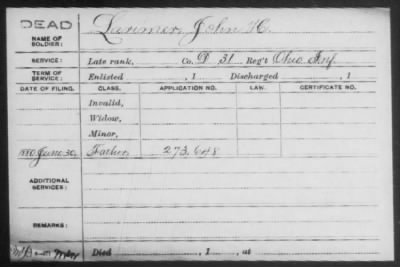 DEAD
NAME OF SOLDIER: Larimer, John H.
SERVICE: Late rank, Co. D 31 Reg't Ohio Inf.
TERM OF SERVICE: Enlisted , 1 Discharged , 1
DATE OF FILING. CLASS. APPLICATION NO. LAW. CERTIFICATE NO.
Invalid,
Widow,
Minor,
1880 June 30, Father, 273,648
ADDITIONAL SERVICES:
REMARKS:
Died , 1 , at